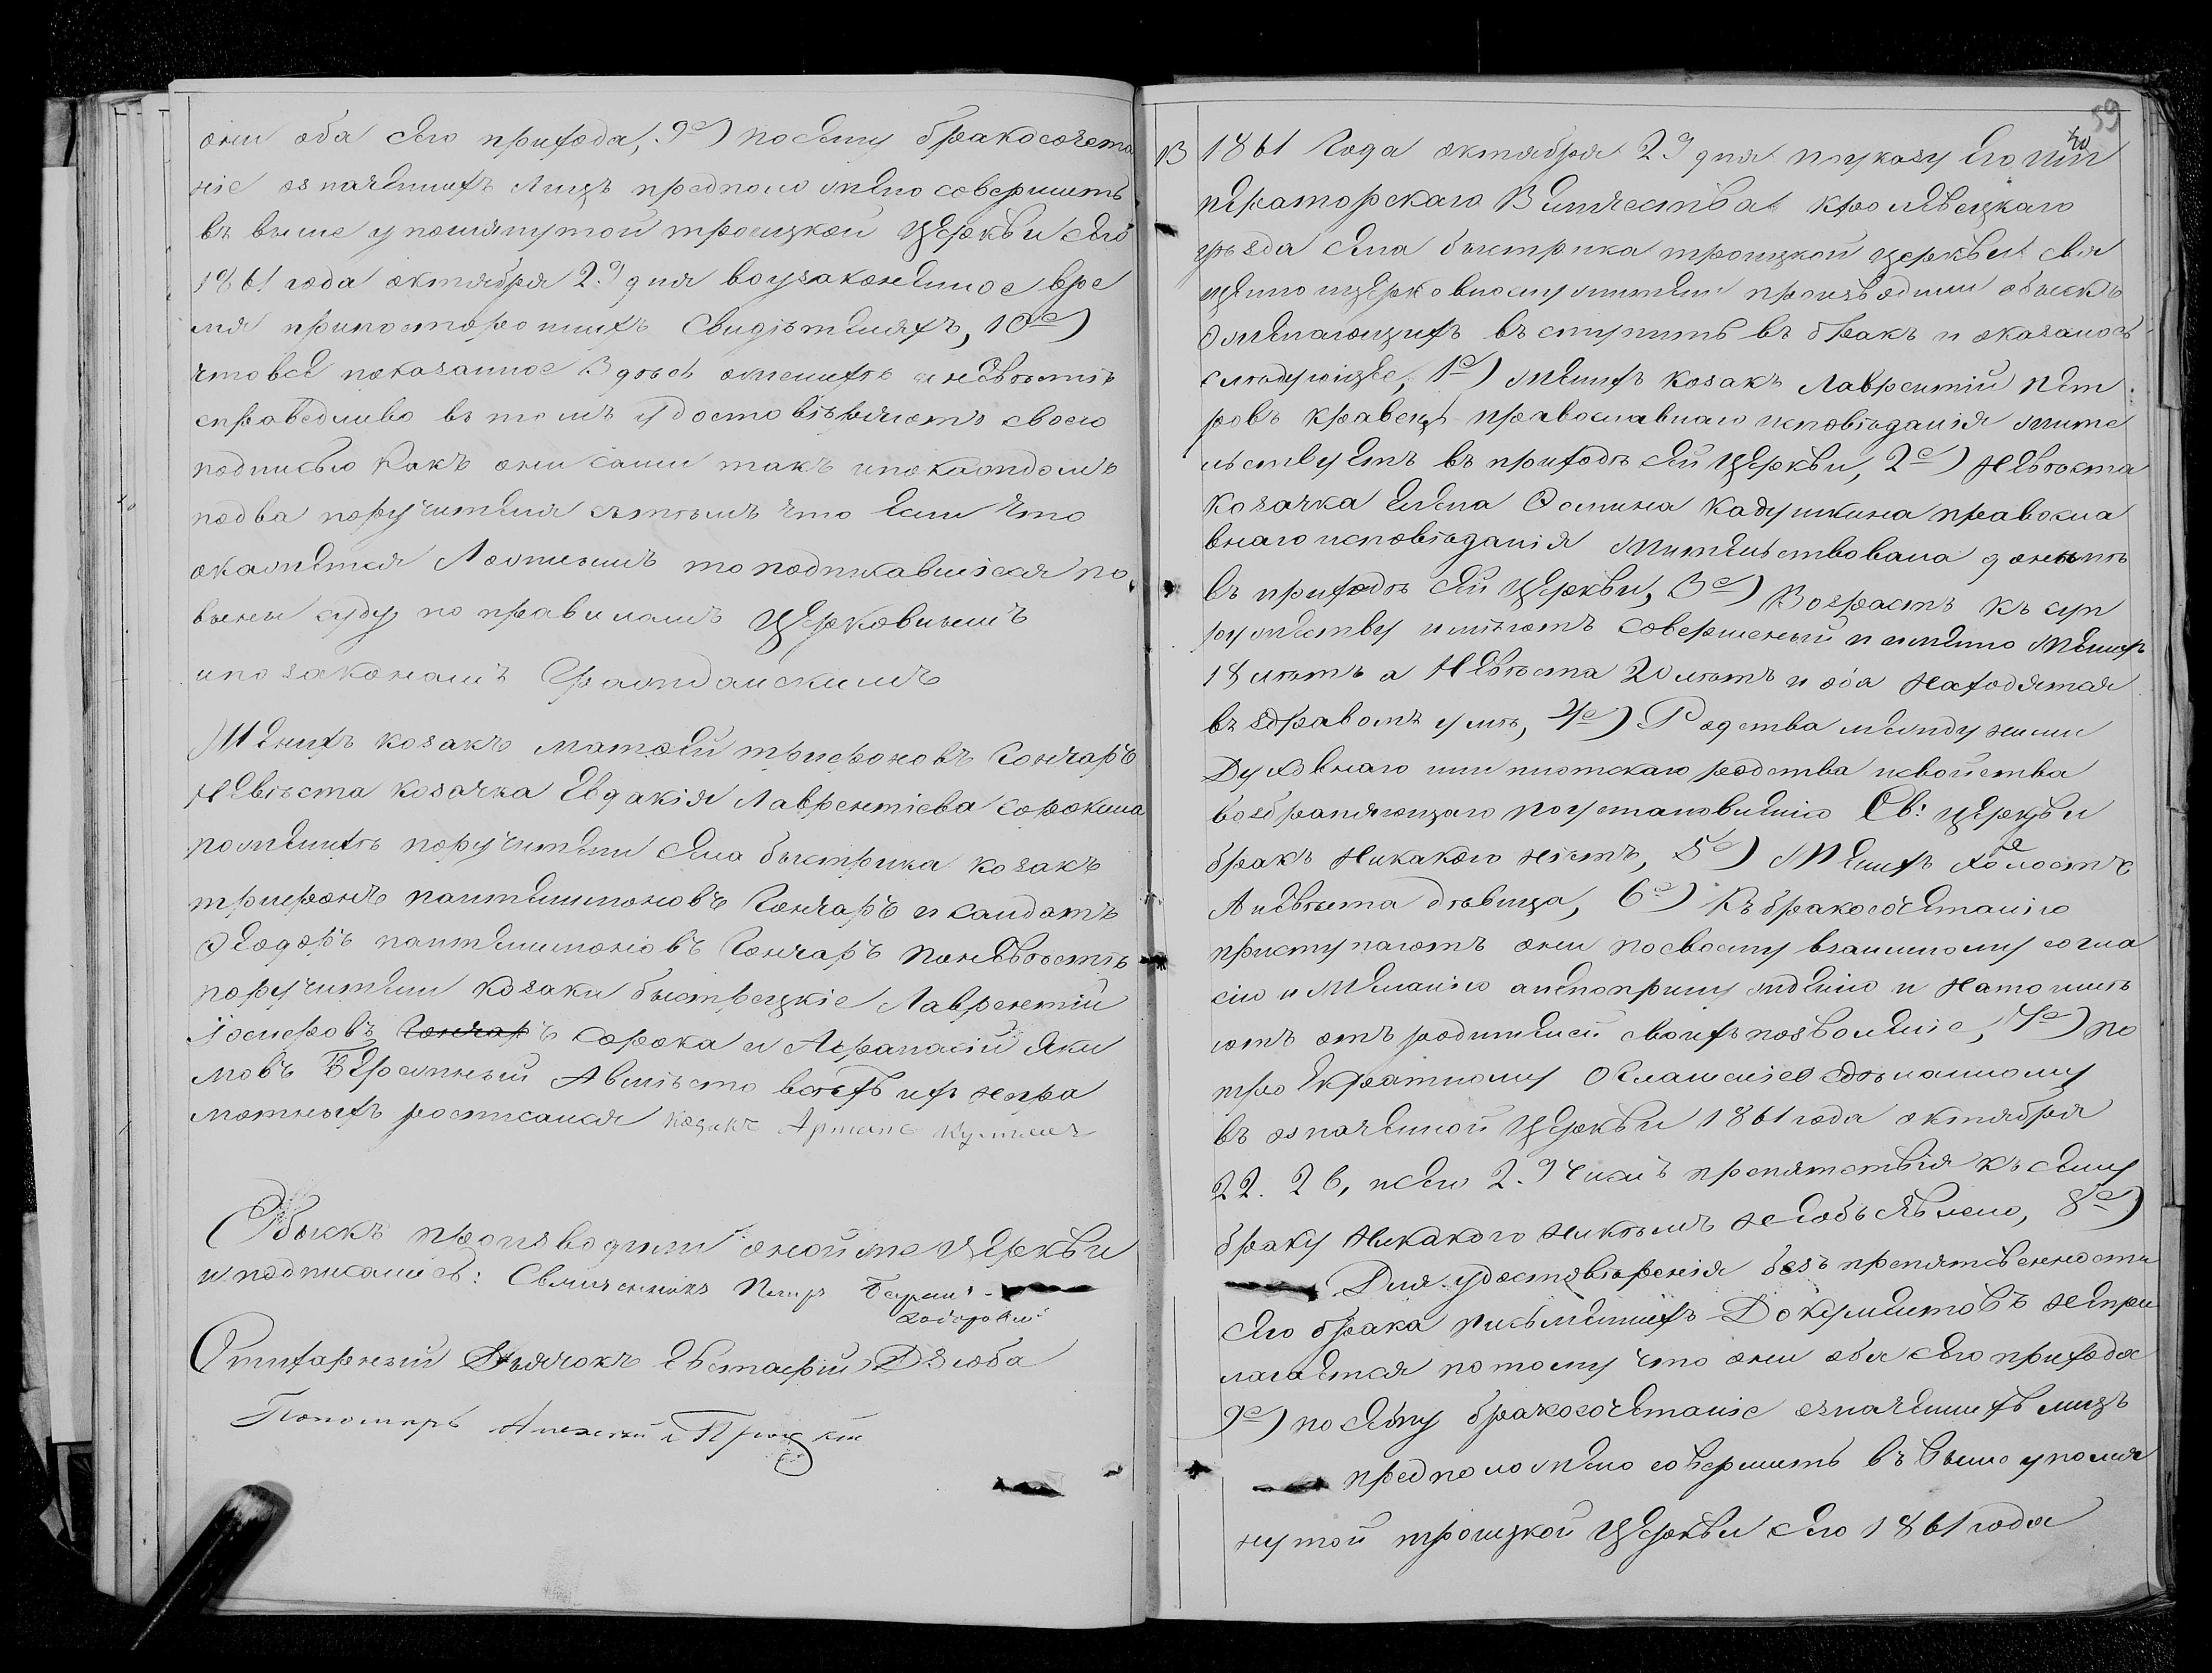 они оба сего прихода, 9е) по сему бракосочета
ніе означенныхъ лицъ предположено совершить
въ выше упомянутой троицкой Церкви сего
1861 года октября 29 дня во узаконенное вре
мя при постороннихъ свидѣтеляхъ, 10е)
что все показанное здѣсь о женихѣ и невѣстѣ
справедливо въ томъ удостовѣряютъ своею
подписью какъ они сами такъ и по каждомъ
по два поручителя съ тѣмъ что если что
окажется ложнымъ то подписавшіеся по
винны суду по правиламъ Церковнымъ
и по законамъ Гражданскимъ
Женихъ козакъ матѳей трифоновъ Гончаръ
Невѣста козачка Евдакія Лаврентіева сорокина
по женихѣ поручители села быстрика козакъ
трифонъ пантелимоновъ Гончаръ и солдатъ
Ѳеодоръ пантелимоновъ Гончаръ по невѣстѣ
поручители козаки быстрецкіе Лаврентій
Іосифовъ Гончаръ сорока и Афанасій Яки
мовъ Бережный А вмѣсто всѣхъ ихъ негра
мотныхъ росписался козакъ
Обыскъ производили оной же Церкви
и подписались: Священникъ Петръ
Стихарный Дьячокъ Евстафій Дзюба
Пономарь Алексей
59
40
13 1861 Года октября 29 дня по указу Его им
ператорскаго Величества кролевецкаго
уѣзда села быстрика троицкой церкви свя
щенно и церковнослужители производили обыскъ
о желающихъ въступить въ бракъ и оказалось
слѣдующее, 1е) Женихъ козакъ Лаврентій пет
ровъ кравецъ православнаго исповѣданія жите
льствуетъ въ приходѣ сей Церкви, 2е) Невѣста
козачка Елена Ѳомина кадушкина правосла
внаго исповѣданія жительствовала донынѣ
въ приходѣ сей Церкви, 3е) Возрастъ къ суп
ружеству имѣютъ совершенный и именно Женихъ
18 лѣтъ а Невѣста 20 лѣтъ и оба находятся
въ здравомъ умѣ, 4е) Родства между ними
Духовнаго или плотскаго родства и свойства
возбраняющаго по установленію Св: церкви
бракъ никакого нѣтъ, 5е) Женихъ холостъ
А невѣста дѣвица, 6е) Къ бракосочетанію
приступаютъ они по своему взаимному согла
сію и желанію а не по принужденію и на то имѣ
ютъ отъ родителей своихъ позволеніе, 7е) по
троекратному Оглашенію сдѣланному
въ означенной Церкви 1861 года октября
22. 26, и сего 29 числъ препятствія къ сему
браку никакого никѣмъ не объявлено, 8е)
Для удостовѣренія безъ препятственности
сего брака письменныхъ Документовъ не при
лагается потому что они оба сего прихода
9е) по сему бракосочетаніе означенныхъ лицъ
предположено совершить въ выше упомя
нутой троицкой Церкви сего 1861 года